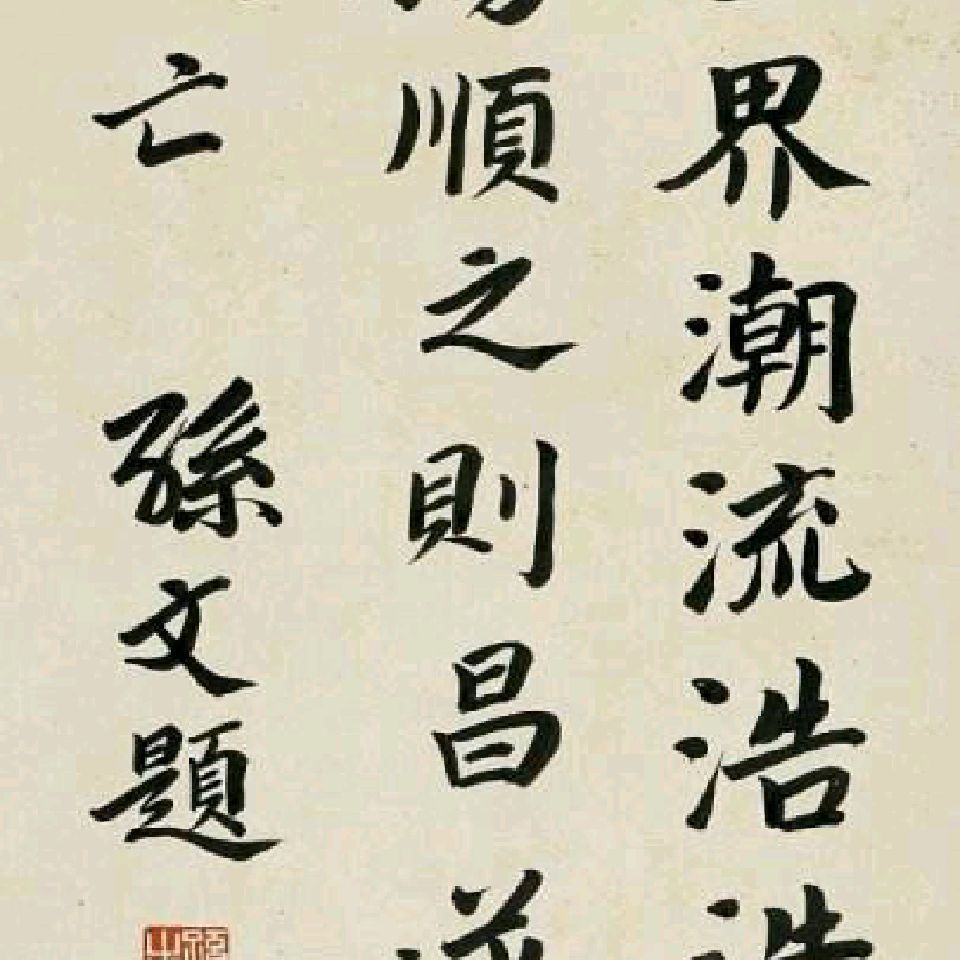 界潮流浩浩
蕩順之則昌逆
亡 孫文題